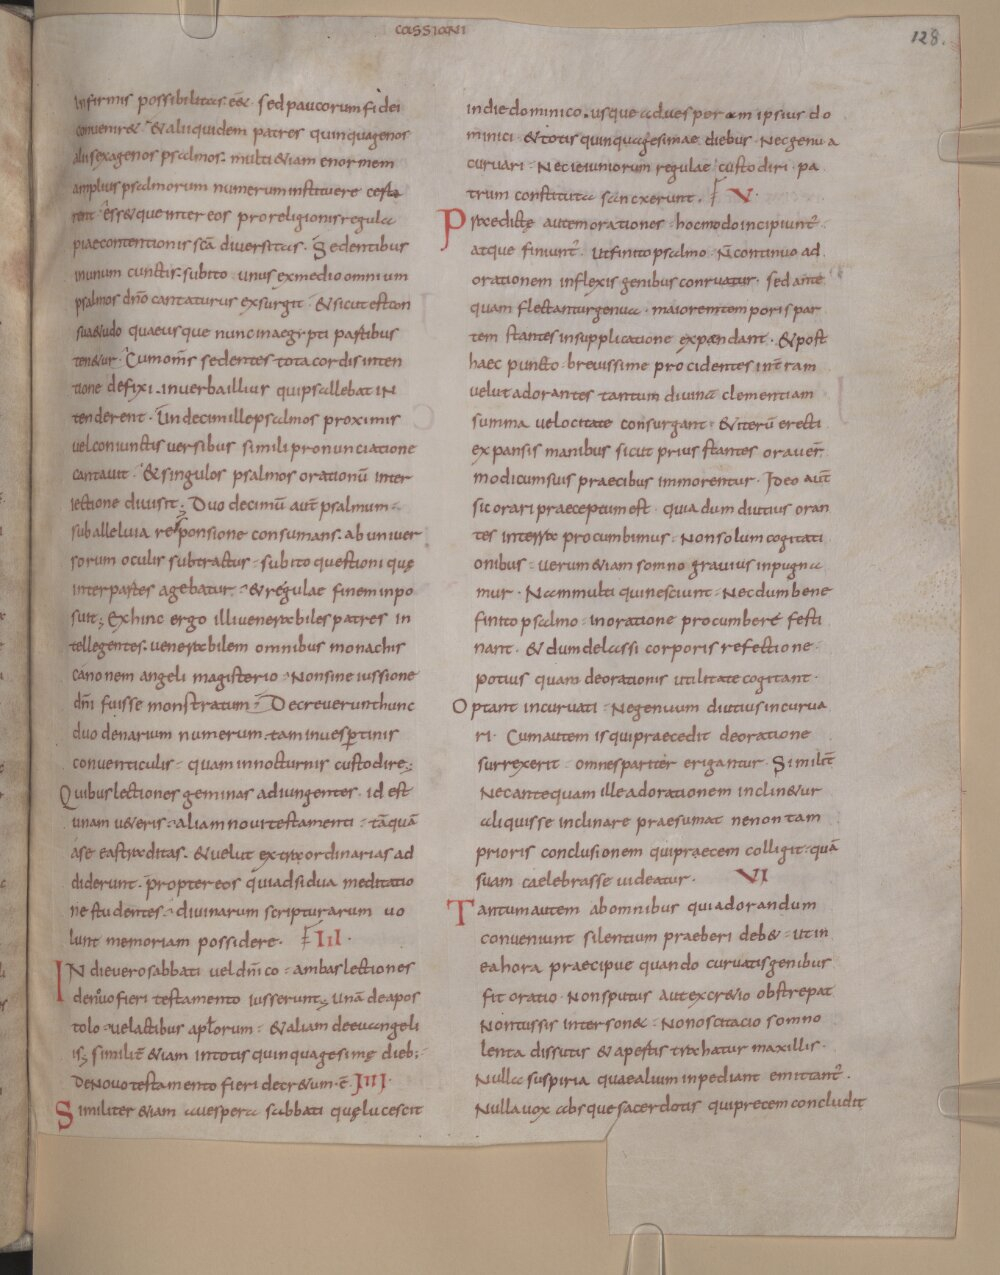 CASSIANI
128.
infirmis possibilitas. eē. sed paucorum fidei
conuenire & aliqui dem patres quinquagenos
alii sexagenos psalmos. multi &iam enormem
amplius psalmorum numerum instituere
rent ēss& que inter eos pro religionis regula
piae contentionis scā diuersitas. Sedentibus
in unum cunctis. subito unus ex medio omnium
psalmos dn̄o cantaturus exsurgit. & sicut est con
su&udo quae usque nunc in aegypti partibus
ten&ur. Cum om̄s sedentes tota cordis inten
tione defixi. in uerba illius qui psallebat IN
tenderent. Undecim ille psalmos proximis
uel coniunctis uersibus simili pronunciatione
cantauit. & singulos psalmos orationū inter
iectione diuisit; Duodecimū aut̄ psalmum
sub alleluia responsione consumans. ab uniuer
sorum oculis subtractus. subito questioni quę
inter partes agebatur. & regulae finem inpo
suit; Exhinc ergo illi uenerabiles patres in
tellegentes. uenerabilem omnibus monachis
canonem angeli magisterio. Non sine iussione
dn̄i fuisse monstratum. Decreuerunt hunc
duodenarium numerum. tam in uespertinis
conuenticulis. quam in nocturnis custodire;
Quibus lectiones geminas adiungentes. id est
unam u&eris. aliam noui testamenti. tāquā
a se eas traditas. & uelut extraordinarias ad
diderunt. propter eos qui adsidua meditatio
ne studentes. diuinarum scripturarum uo
lunt memoriam possidere. III.
IN die uero sabbati uel dn̄ico. ambas lectiones
de nouo fieri testamento iusserunt; unā de apos
tolo. uel actibus apłorum. & aliam de euangeli
is; similit̄ &iam in totis quinquagesimę dieb;
DE Nouo testamento fieri decr&um. ē. IIII.
Similiter &iam a uespera sabbati quę lucescit
in die dominico. usque ad uesperam ipsius do
minici. & totis quinquagesimae diebus. Nec genua
curuari. Nec ieiuniorum regulae custodiri. pa
trum constituta sanxerunt. V.
Praedictę autem orationes hoc modo incipiunt̄
atque finiunt̄. Ut finito psalmo. N̄ continuo ad
orationem inflexis genibus conruatur. sed ante
quam flectantur genua. maiorem temporis par
tem stantes in supplicatione expendant. & post
haec puncto breuissime procidentes in t̄ram
uelut adorantes tantum diuinā clementiam
summa uelocitate consurgant. & iterū erecti
expansis manibus sicut prius stantes orauer̄
modicum suis praecibus inmorentur. Ideo aut̄
sic orari praeceptum est. quia dum diutius oran
tes in terra procumbimus. Non solum cogitati
onibus. uerum &iam somno grauius inpugna
mur. Nam multi qui nesciunt. Necdum bene
finito psalmo. in oratione procumbere festi
nant. & dum de lassi corporis refectione
potius quam de orationis utilitate cogitant.
Optant incuruati. Ne genuum diutius incurua
ri. Cum autem is qui praecedit de oratione
surrexerit. omnes pariter erigantur. Similit̄
Nec antequam ille ad orationem inclin&ur
aliquis se inclinare praesumat ne non tam
prioris conclusionem qui praecem colligit. quā
suam caelebrasse uideatur. VI
Tantum autem ab omnibus qui adorandum
conueniunt silentium praeberi deb&. ut in
ea hora praecipue quando curuatis genibus
fit oratio. Non sputus aut excr&io obstrepat
Non tussis interson&. Non oscitacio somno
lenta dissutis & apertis trahatur maxillis.
Nulla suspiria quae alium inpediant emittant̄.
Nulla uox absque sacerdotis qui precem concludit